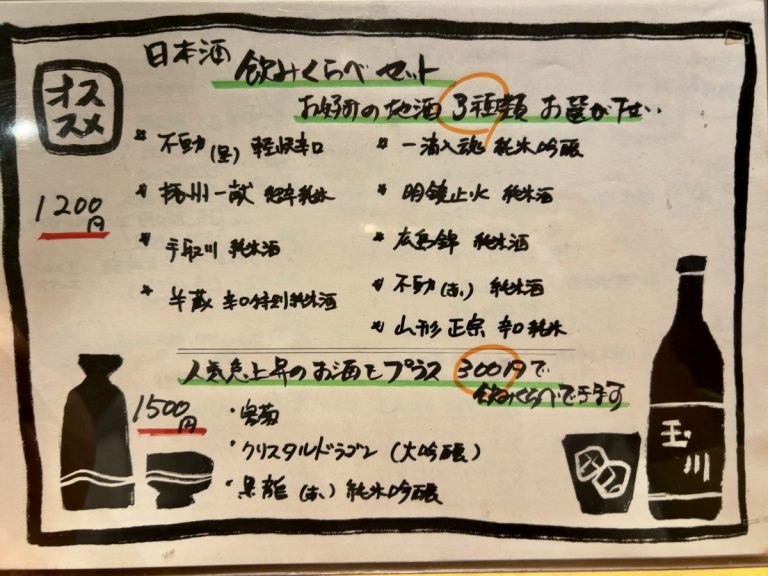 オス
スメ
日本酒 飲みくらべセット
お好みの地酒 3種類 お選び下さい
1200円
* 不動(黒) 軽快辛口
* 播州一献 超辛純米
* 手取川 純米酒
* 半蔵 辛口特別純米酒
* 一滴入魂 純米吟醸
* 明鏡止水 純米酒
* 広島錦 純米酒
* 不動(赤) 純米酒
* 山形正宗 辛口純米
人気急上昇のお酒もプラス 300円で
飲みくらべできます
1500円
・クリスタルドラゴン(大吟醸)
・黒龍 純米吟醸
玉川